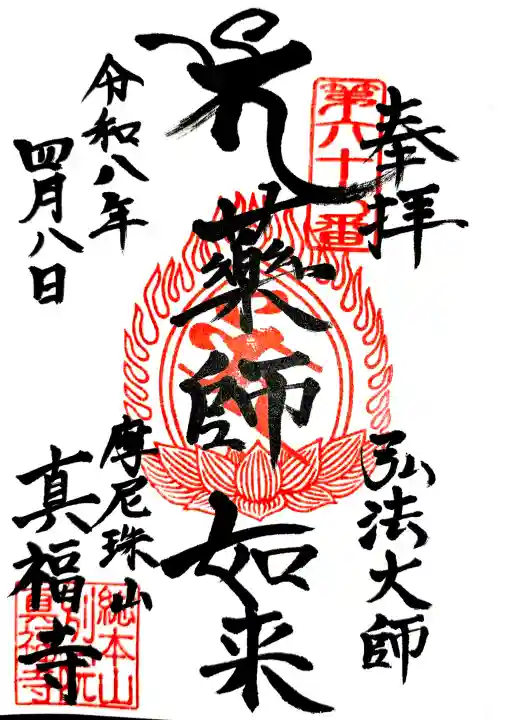 奉拝
弘法大師
薬師如来
令和八年
四月八日
摩尼珠山
真福寺
総本山
別院
真福寺